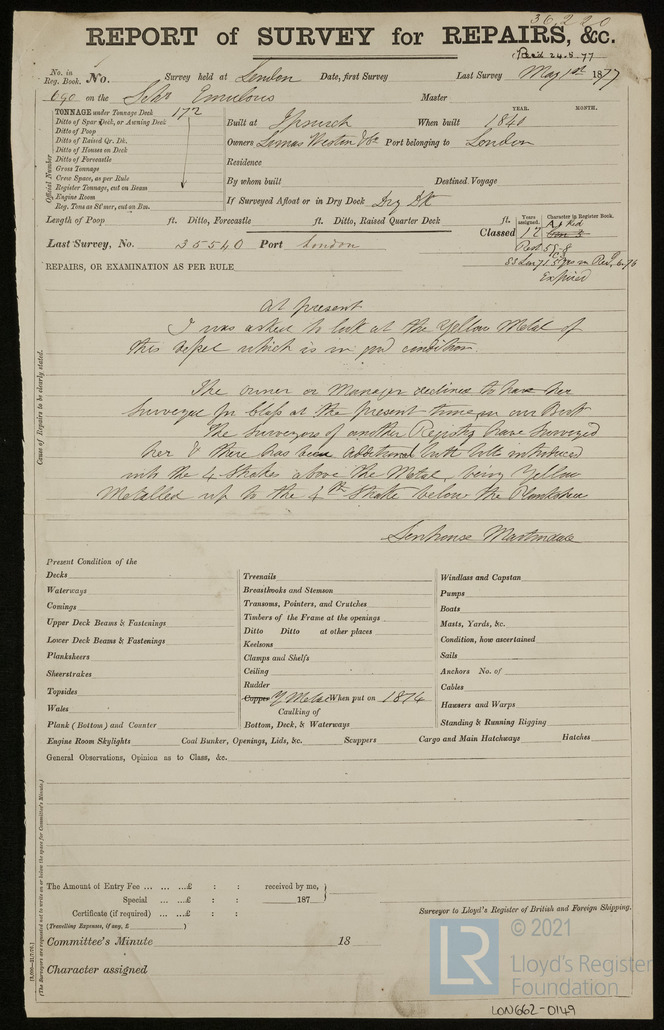 36,220
REPORT of SURVEY for REPAIRS, &c.
24.5.77
No. in Reg. Book. No. Survey held at London Date, first Survey Last Survey May 1st 1877
690 on the Schr Emulous Master
TONNAGE under Tonnage Deck 172
Ditto of Spar Deck, or Awning Deck
Ditto of Poop
Ditto of Raised Qr. Dk.
Ditto of Houses on Deck
Ditto of Forecastle
Gross Tonnage
Crew Space, as per Rule
Register Tonnage, cut on Beam
Engine Room
Reg. Ton as St'mer, cut on Bm.
Official Number
YEAR. MONTH.
Built at Ipswich When built 1840
Owners Lomas Weston & Co Port belonging to London
Residence
By whom built Destined Voyage
If Surveyed Afloat or in Dry Dock Dry Dk
Length of Poop ft. Ditto, Forecastle ft. Ditto, Raised Quarter Deck ft.
Years assigned. Character in Register Book.
Classed 12 A1 Red
Rest 59-8
Last Survey, No. 35540 Port London
Expired
REPAIRS, OR EXAMINATION AS PER RULE
Cause of Repairs to be clearly stated.
At present
I was asked to look at the Yellow Metal of
this vessel which is in good condition.
The owner or Manager declined to have her
Surveyed for Class at the present time in our Book
The Surveyors of another Registry have Surveyed
her & there has been additional butt bolts introduced
into the 4 Strakes above the Metal, being Yellow
Metalled up to the 4th Strake below the Planksheer
Senhouse Martindale
Present Condition of the
Decks
Waterways
Comings
Upper Deck Beams & Fastenings
Lower Deck Beams & Fastenings
Planksheers
Sheerstrakes
Topsides
Wales
Plank (Bottom) and Counter
Treenails
Breasthooks and Stemson
Transoms, Pointers, and Crutches
Timbers of the Frame at the openings
Ditto Ditto at other places
Keelsons
Clamps and Shelfs
Ceiling
Rudder
Copper Y Metal When put on 1874
Caulking of
Bottom, Deck, & Waterways
Windlass and Capstan
Pumps
Boats
Masts, Yards, &c.
Condition, how ascertained
Sails
Anchors No. of
Cables
Hawsers and Warps
Standing & Running Rigging
Engine Room Skylights Coal Bunker, Openings, Lids, &c. Scuppers Cargo and Main Hatchways Hatches
General Observations, Opinion as to Class, &c.
(The Surveyors are requested not to write on or below the space for Committee's Minute.)
The Amount of Entry Fee ... ... ...£ : : received by me,
Special ... ...£ : : 187
Certificate (if required) ... ...£ : :
(Travelling Expenses, if any, £ )
Surveyor to Lloyd's Register of British and Foreign Shipping.
Committee's Minute 18
Character assigned
© 2021
LR
Lloyd's Register
Foundation
LON662-0149